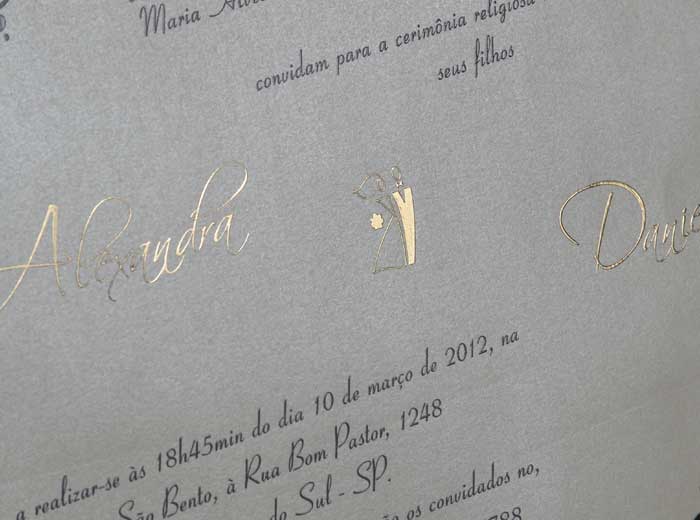 Maria
convidam para a cerimônia religiosa
seus filhos
Alexandra
a realizar-se às 18h45min do dia 10 de março de 2012, na
São Bento, à Rua Bom Pastor, 1248
do Sul - SP.
os convidados no,
788